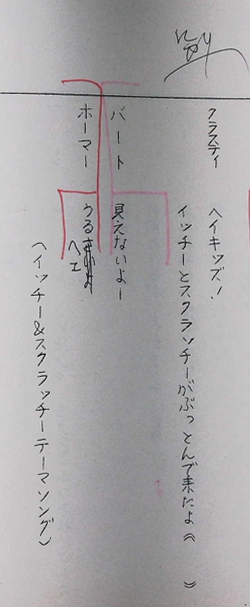 クラスティ　ヘイキッズ！
イッチーとスクラッチーがぶっとんで来たよ《　　》
バート　見えないよー
ホーマー　うるヘエ
〈イッチー&スクラッチーテーマソング〉